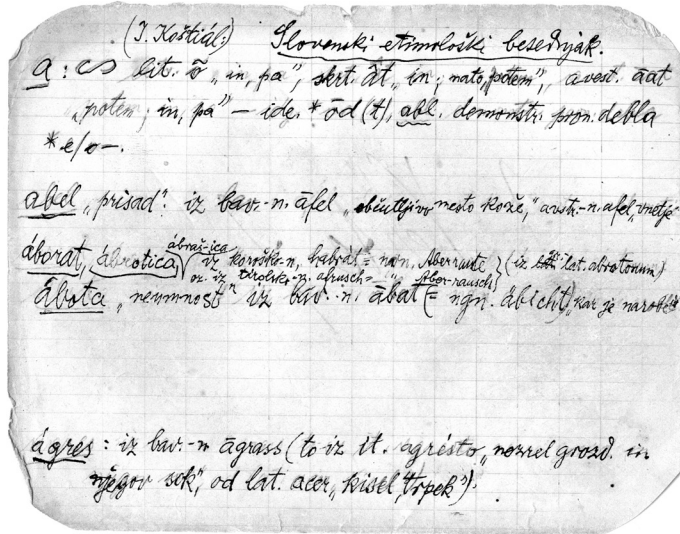 (I. Koštiál:) Slovenski etimološki besednjak.
a : lit. õ „in, pa", skrt. āt „in; nato, potem", avest. āat
„potem; in, pa" – ide. *ōd(t), abl. demonstr. pron. debla
*e/o-.
abel „prisad": iz bav.-n. āfel „občutljivo mesto kože," avstr.-n. afel „vnetje
áborat, ábrotica, ábraš-ica iz koroško-n. habrát = nvn. Aberraute (iz lat. abrotonum)
oz. iz tirolsko-n. afrusch- = Abor-rausch
ábota „neumnost" iz bav.-n. ābat (= ngn. äbicht) „kar je narobe
ágres : iz bav.-n āgrass (to iz it. agrésto „nezrel grozd in
njegov sok", od lat. acer „kisel, trpek").